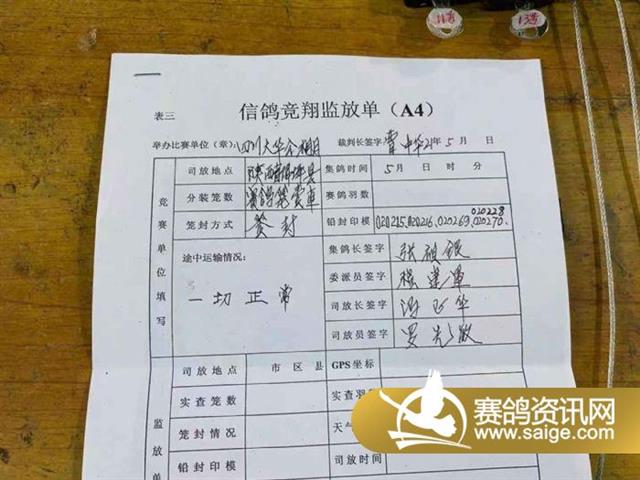 11号
13号
表三
信鸽竞翔监放单（A4）
举办比赛单位（章）：四川大华 裁判长签字：曹中华 21年5月 日
竞赛单位填写
司放地点 陕西 县 集鸽时间 5月 日 时 分
分装笼数 赛鸽笼 车 赛鸽羽数
020228
笼封方式 签封 铅封印模 020215.020216.020269.020270.
途中运输情况：
一切正常
集鸽长签字 张
委派员签字
司放长签字 冯飞华
司放员签字 罗
监放单
司放地点 市 区 县 GPS坐标
实查笼数 实查羽
笼封情况 天气
铅封印模 司放时间
赛鸽资讯网
www.saige.com